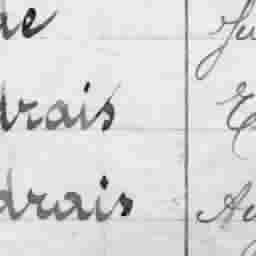 ae Ju
drais E
drais Au